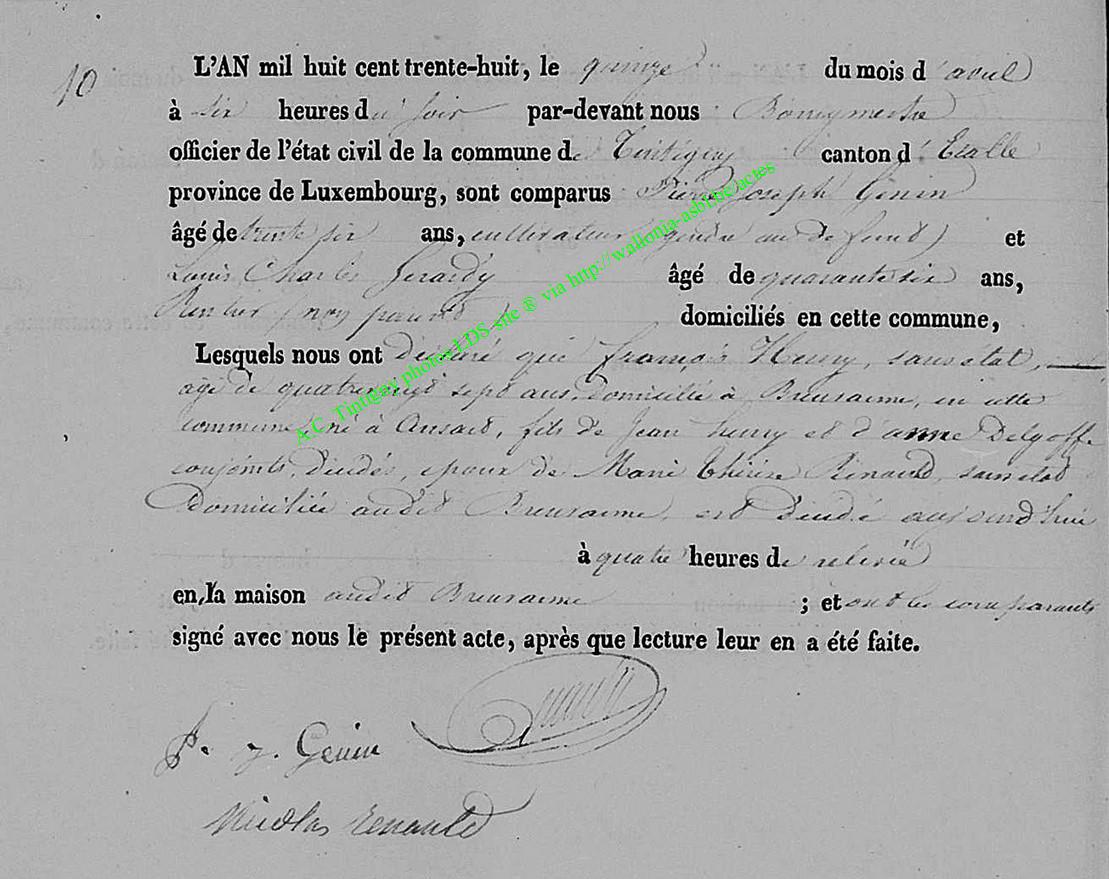 10
L'AN mil huit cent trente-huit, le quinze du mois d'avril
à six heures du soir par-devant nous Bourgmestre
officier de l'état civil de la commune de Tintigny canton d'Etalle
province de Luxembourg, sont comparus Pierre Joseph Génin
âgé de trente six ans, cultivateur (gendre au defunt) et
Louis Charles Gerardy âgé de quarante six ans,
Rentier, non parent domiciliés en cette commune,
Lesquels nous ont déclaré que françois Henry, sans état,
agé de quatrevingt sept ans, domicilié à Breuvanne, en cette
commune, né à Ansart, fils de Jean henry et d'anne Delgoffe
conjoints décédés, epoux de Marie thérèse Renauld, sans etat
Domiciliée audit Breuvanne, est décédé aujourd'huie
à quatre heures de relevée
en la maison audit Breuvanne ; et ont les comparants
signé avec nous le présent acte, après que lecture leur en a été faite.
P. J. Genin
Nicolas Renauld
A.C. Tintigny photos LDS site ® via http://wallonia-asbl.be/actes